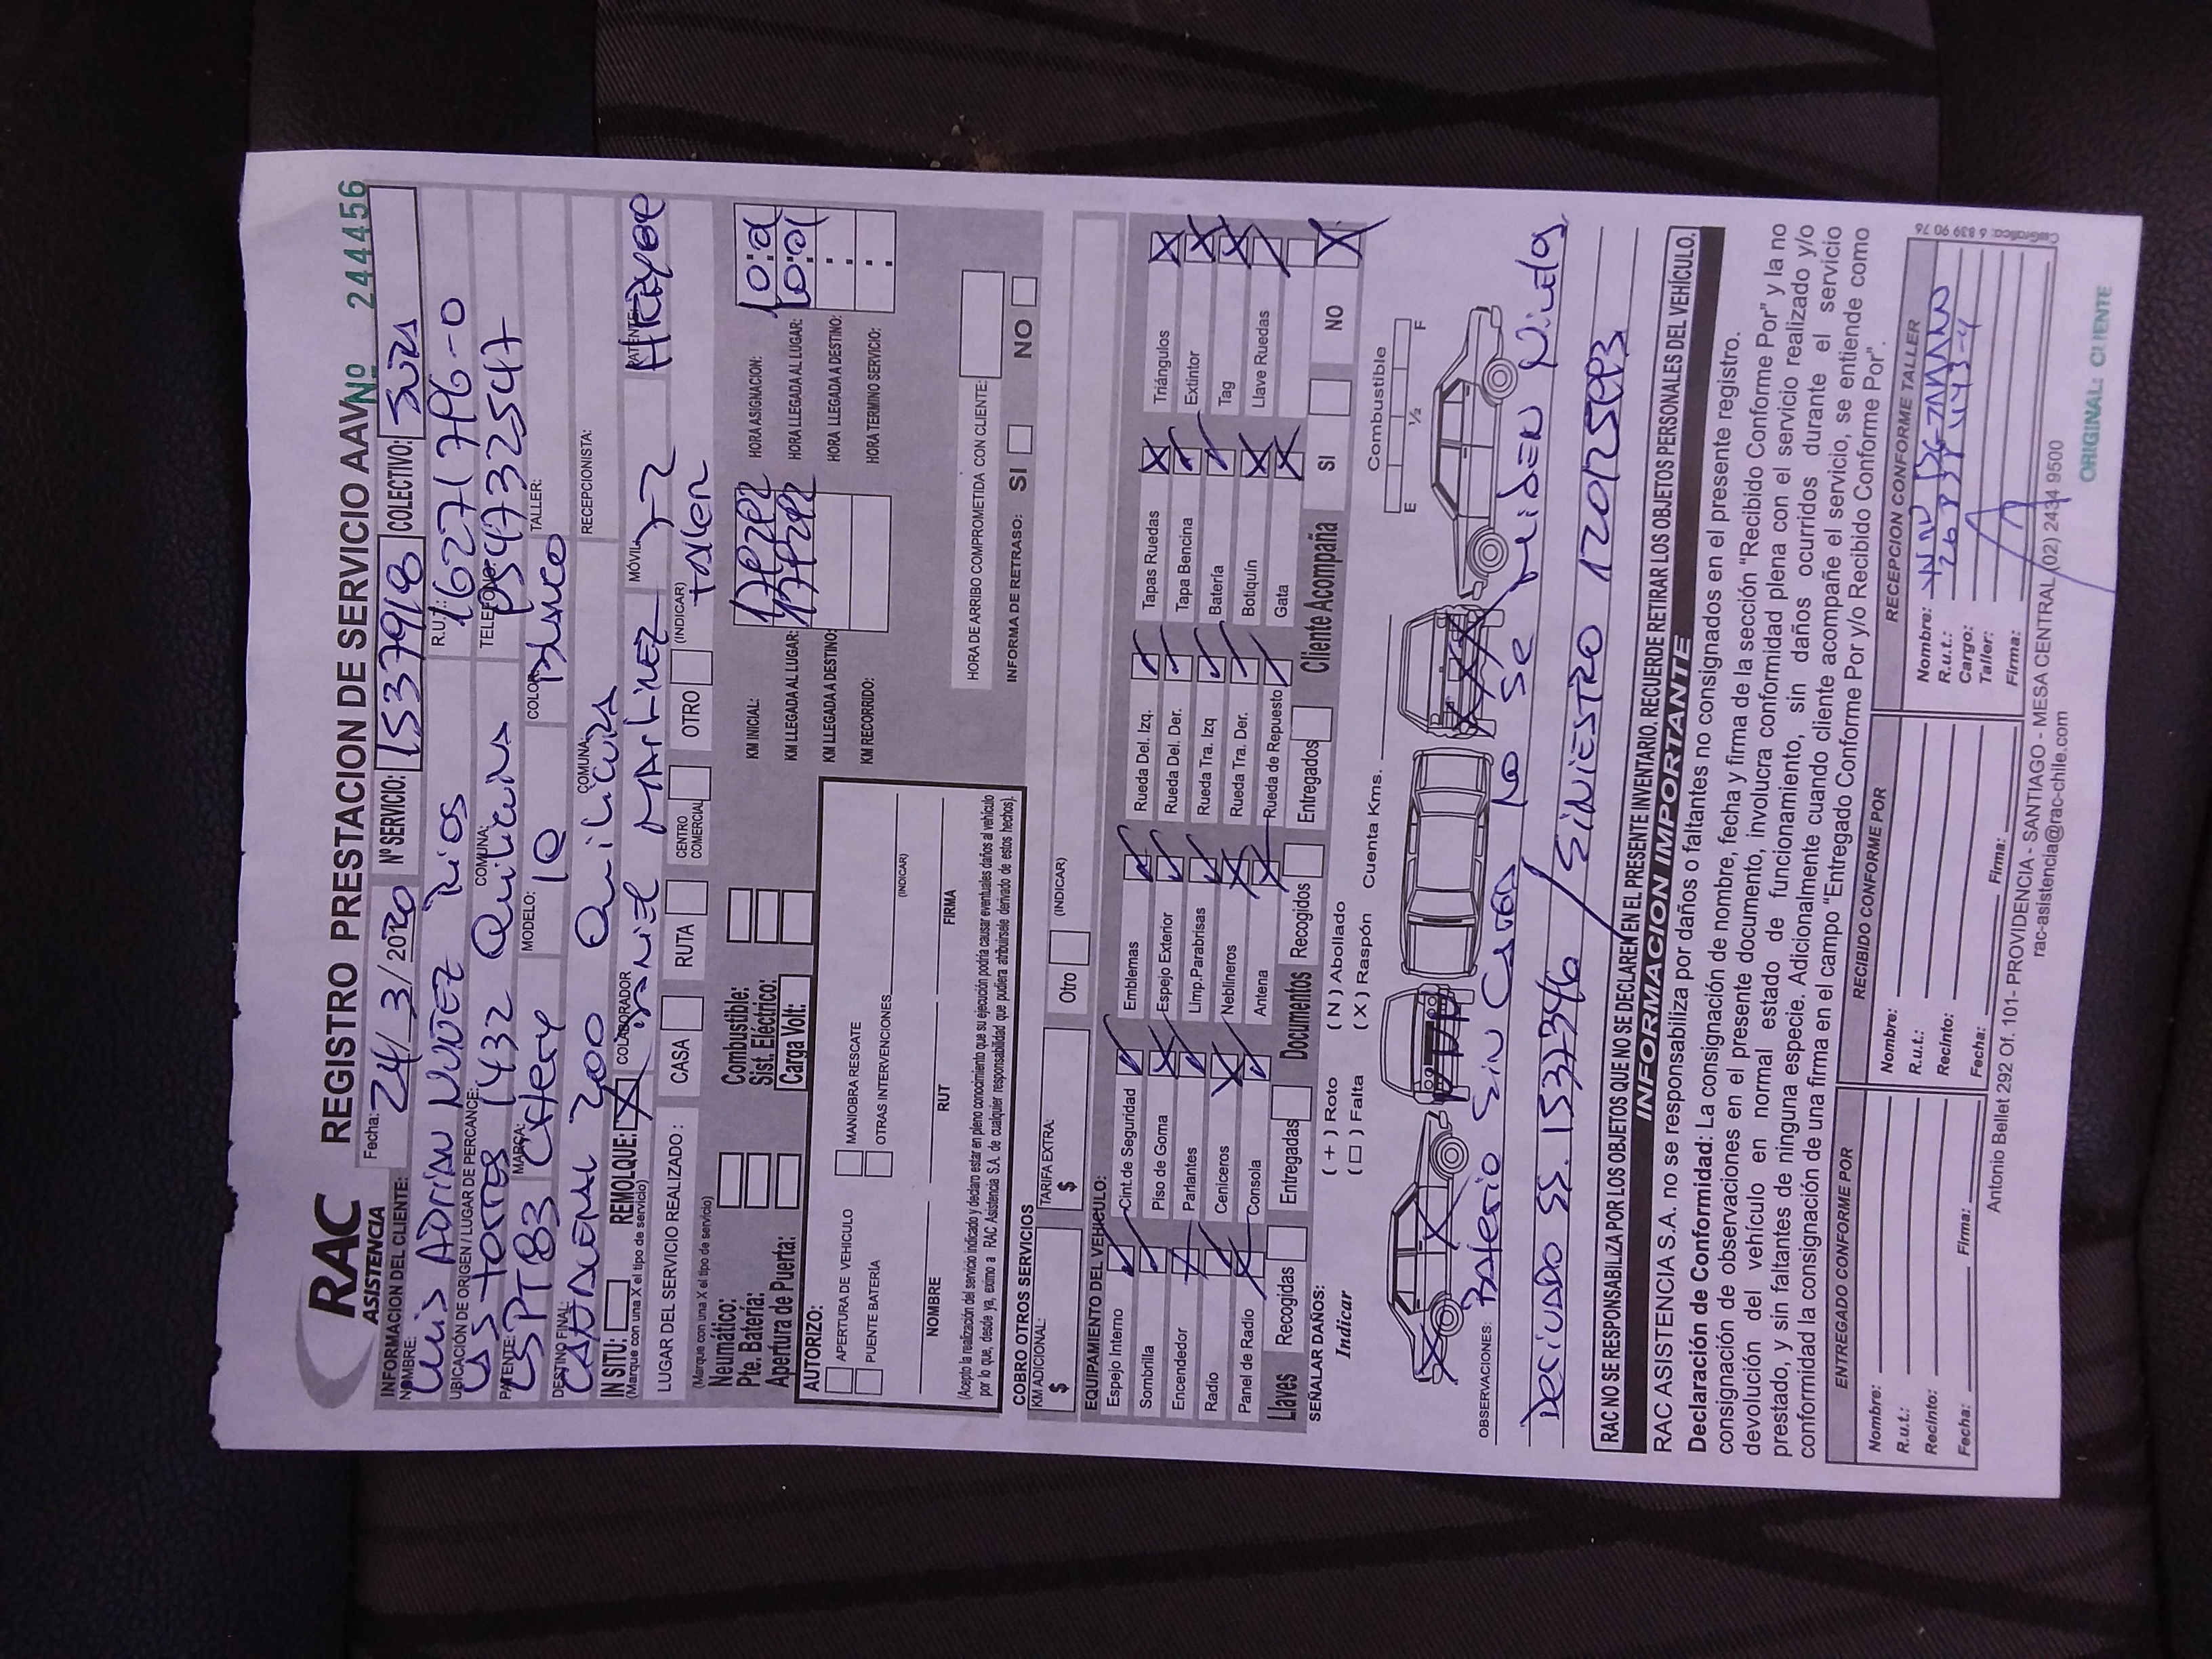 RAC
ASISTENCIA
REGISTRO PRESTACION DE SERVICIO AAV Nº 244456
INFORMACION DEL CLIENTE: Fecha: 24/3/2020 Nº SERVICIO: 1537918 COLECTIVO: SURA
NOMBRE: Luis ADRIAN NUÑEZ RIOS R.U.T: 16271796-0
UBICACIÓN DE ORIGEN / LUGAR DE PERCANCE: LAS TORRES 1432 COMUNA: Quilicura TELEFONO: 954732547
PATENTE: MARCA: Chery MODELO: IQ COLOR: BLANCO TALLER:
DESTINO FINAL: CARDENAL 200 Quilicura COMUNA: Quilicura RECEPCIONISTA:
IN SITU: REMOLQUE: X COLABORADOR DANIEL MARTINEZ MÓVIL: PATENTE:
(Marque con una X el tipo de servicio)
LUGAR DEL SERVICIO REALIZADO: CASA RUTA CENTRO COMERCIAL OTRO (INDICAR) taller
(Marque con una X el tipo de servicio)
Neumático: Combustible:
Pte. Batería: Sist. Eléctrico:
Apertura de Puerta: Carga Volt:
KM INICIAL: HORA ASIGNACION:
KM LLEGADA AL LUGAR: HORA LLEGADA AL LUGAR:
KM LLEGADA A DESTINO: HORA LLEGADA A DESTINO:
KM RECORRIDO: HORA TERMINO SERVICIO:
AUTORIZO:
APERTURA DE VEHICULO MANIOBRA RESCATE
PUENTE BATERÍA OTRAS INTERVENCIONES (INDICAR)
NOMBRE RUT FIRMA
(Acepto la realización del servicio indicado y declaro estar en pleno conocimiento que su ejecución podría causar eventuales daños al vehículo
por lo que, desde ya, eximo a RAC Asistencia S.A. de cualquier responsabilidad que pudiera atribuírsele derivado de estos hechos).
HORA DE ARRIBO COMPROMETIDA CON CLIENTE:
INFORMA DE RETRASO: SI NO
COBRO OTROS SERVICIOS
KM ADICIONAL: $ TARIFA EXTRA: $ Otro (INDICAR)
EQUIPAMIENTO DEL VEHICULO:
Espejo Interno Cint.de Seguridad Emblemas Rueda Del. Izq. Tapas Ruedas Triángulos
Sombrilla Piso de Goma Espejo Exterior Rueda Del. Der. Tapa Bencina Extintor
Encendedor Parlantes Limp.Parabrisas Rueda Tra. Izq Batería Tag
Radio Ceniceros Neblineros Rueda Tra. Der. Botiquín Llave Ruedas
Panel de Radio Consola Antena Rueda de Repuesto Gata
Llaves Recogidas Entregadas Documentos Recogidos Entregados Cliente Acompaña SI NO
SEÑALAR DAÑOS:
Indicar ( + ) Roto ( N ) Abollado
( □ ) Falta ( X ) Raspón Cuenta Kms. Combustible E 1/2 F
OBSERVACIONES: Baterio Sin Carga No Se miden Niveles
Derivado SS. 1537346 / SINIESTRO
RAC NO SE RESPONSABILIZA POR LOS OBJETOS QUE NO SE DECLAREN EN EL PRESENTE INVENTARIO. RECUERDE RETIRAR LOS OBJETOS PERSONALES DEL VEHÍCULO.
INFORMACION IMPORTANTE
RAC ASISTENCIA S.A. no se responsabiliza por daños o faltantes no consignados en el presente registro.
Declaración de Conformidad: La consignación de nombre, fecha y firma de la sección "Recibido Conforme Por" y la no
consignación de observaciones en el presente documento, involucra conformidad plena con el servicio realizado y/o
devolución del vehículo en normal estado de funcionamiento, sin daños ocurridos durante el servicio
prestado, y sin faltantes de ninguna especie. Adicionalmente cuando cliente acompañe el servicio, se entiende como
conformidad la consignación de una firma en el campo "Entregado Conforme Por y/o Recibido Conforme Por".
ENTREGADO CONFORME POR
Nombre:
R.u.t.:
Recinto:
Fecha: Firma:
RECIBIDO CONFORME POR
Nombre:
R.u.t.:
Recinto:
Fecha: Firma:
RECEPCION CONFORME TALLER
Nombre:
R.u.t.:
Cargo:
Taller:
Firma:
Antonio Bellet 292 Of. 101- PROVIDENCIA - SANTIAGO - MESA CENTRAL (02) 2434 9500
rac-asistencia@rac-chile.com
ORIGINAL: CLIENTE
CiaGrafica: 6 839 90 76